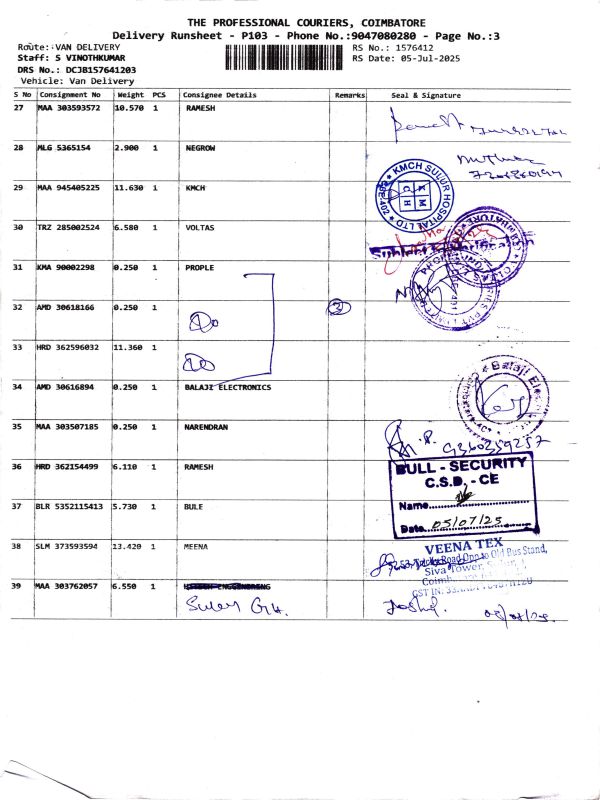 THE PROFESSIONAL COURIERS, COIMBATORE
Delivery Runsheet - P103 - Phone No.:9047080280 - Page No.:3
Route: VAN DELIVERY
RS No.: 1576412
Staff: S VINOTHKUMAR
RS Date: 05-Jul-2025
DRS No.: DCJB157641203
Vehicle: Van Delivery
S No Consignment No Weight PCS Consignee Details Remarks Seal & Signature
27 MAA 303593572 10.570 1 RAMESH
28 MLG 5365154 2.900 1 NEGROW
29 MAA 945405225 11.630 1 KMCH
KMCH SULUR HOSPITAL LTD
30 TRZ 285002524 6.580 1 VOLTAS
31 KMA 90002298 0.250 1 PROPLE
32 AMD 30618166 0.250 1
Do
3
33 HRD 362596032 11.360 1
Do
34 AMD 30616894 0.250 1 BALAJI ELECTRONICS
Balaji
35 MAA 303507185 0.250 1 NARENDRAN
9360259257
36 HRD 362154499 6.110 1 RAMESH
BULL - SECURITY
C.S.D. - CE
Name
Date 05/07/25
37 BLR 5352115413 5.730 1 BULE
38 SLM 373593594 13.420 1 MEENA
VEENA TEX
Road Opp to Old Bus Stand,
Siva Tower,
39 MAA 303762057 6.550 1